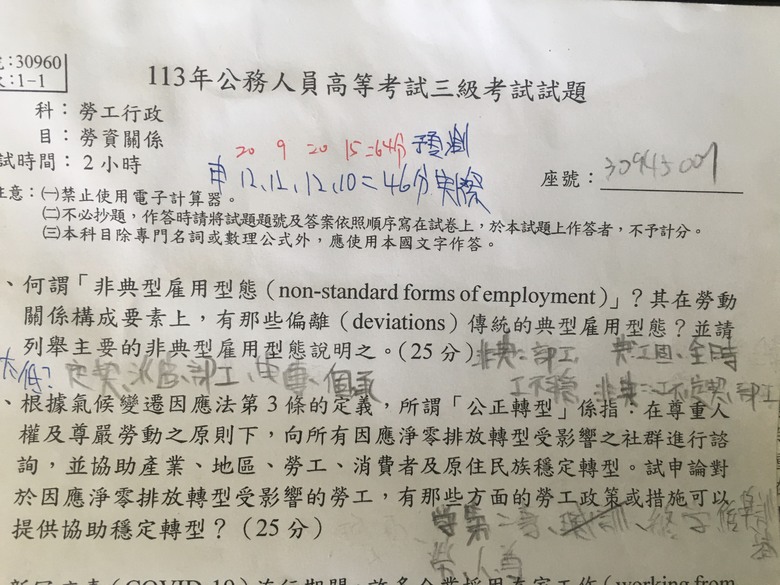 :30960
:1-1
113年公務人員高等考試三級考試試題
科：勞工行政
目：勞資關係
試時間：2小時
座號：30945007
20 9 20 15=64分 預測
12,12,12,10=46分實際
注意：㈠禁止使用電子計算器。
㈡不必抄題，作答時請將試題題號及答案依照順序寫在試卷上，於本試題上作答者，不予計分。
㈢本科目除專門名詞或數理公式外，應使用本國文字作答。
、何謂「非典型雇用型態（non-standard forms of employment）」？其在勞動
關係構成要素上，有那些偏離（deviations）傳統的典型雇用型態？並請
列舉主要的非典型雇用型態說明之。（25 分）
非典:部工
、根據氣候變遷因應法第 3 條的定義，所謂「公正轉型」係指：在尊重人
權及尊嚴勞動之原則下，向所有因應淨零排放轉型受影響之社群進行諮
詢，並協助產業、地區、勞工、消費者及原住民族穩定轉型。試申論對
於因應淨零排放轉型受影響的勞工，有那些方面的勞工政策或措施可以
提供協助穩定轉型？（25 分）
（COVID-19）流行期間，許多企業採用在家工作（working from